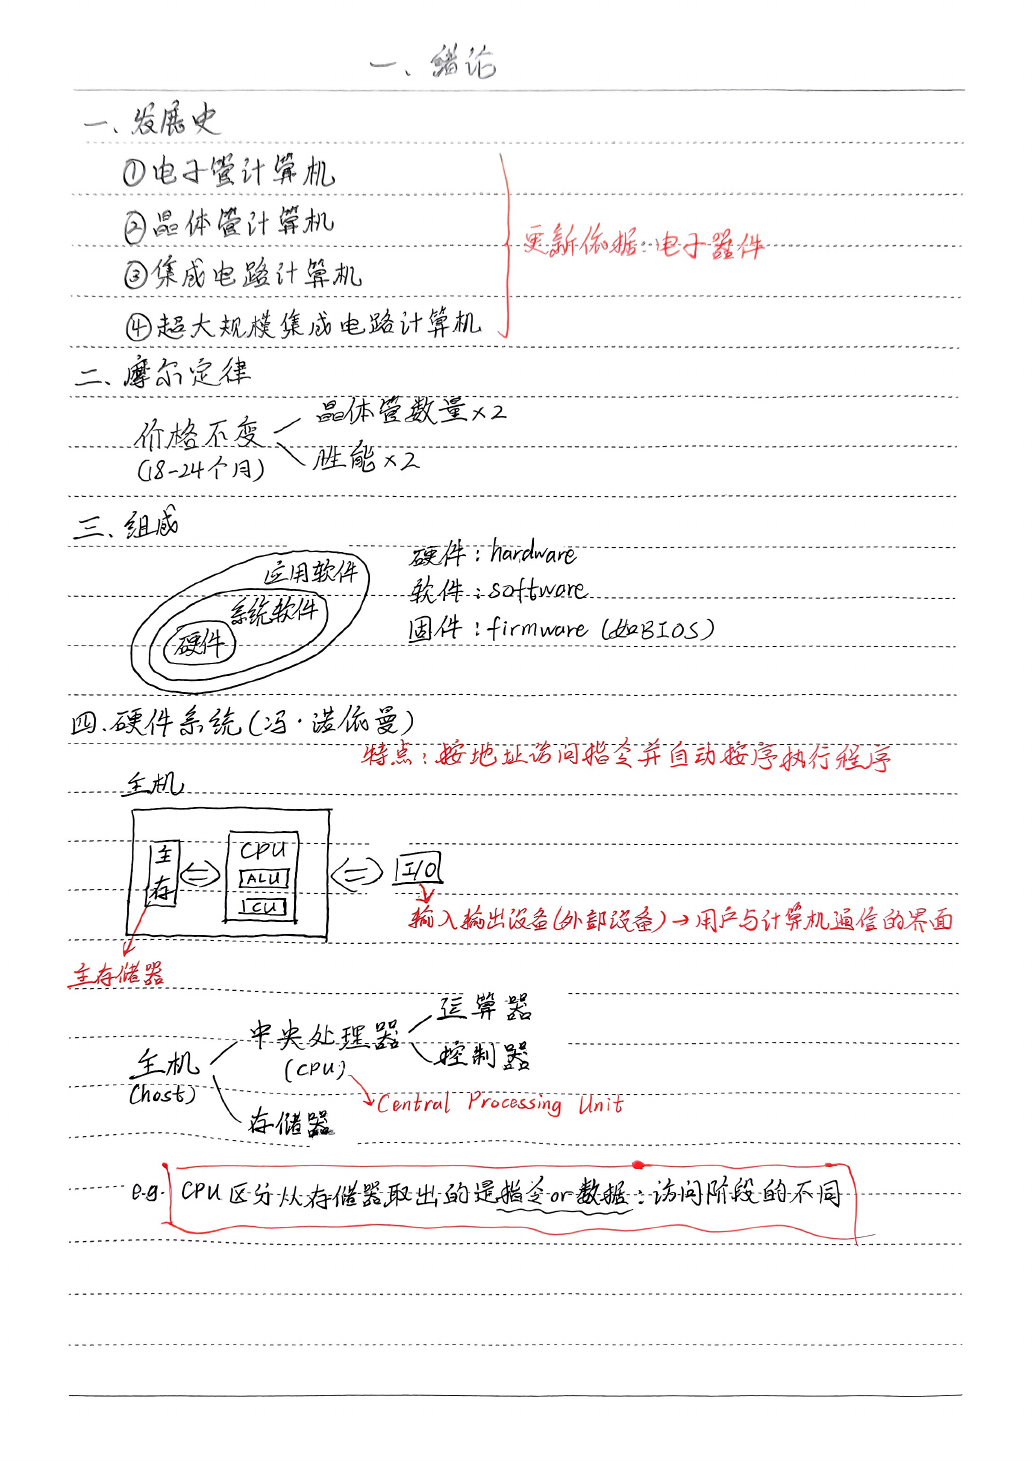 一、绪论
一、发展史
①电子管计算机
②晶体管计算机
更新依据:电子器件
③集成电路计算机
④超大规模集成电路计算机
二、摩尔定律
晶体管数量×2
价格不变
(18-24个月)
性能×2
三、组成
应用软件
系统软件
硬件
硬件:hardware
软件:software
固件:firmware(如BIOS)
四.硬件系统(冯·诺依曼)
特点:按地址访问指令并自动按序执行程序
主机
主存
CPU
ALU
CU
I/O
输入输出设备(外部设备)→用户与计算机通信的界面
主存储器
运算器
中央处理器
(CPU)
控制器
主机
(host)
Central Processing Unit
存储器
e.g. CPU区分从存储器取出的是指令or数据:访问阶段的不同